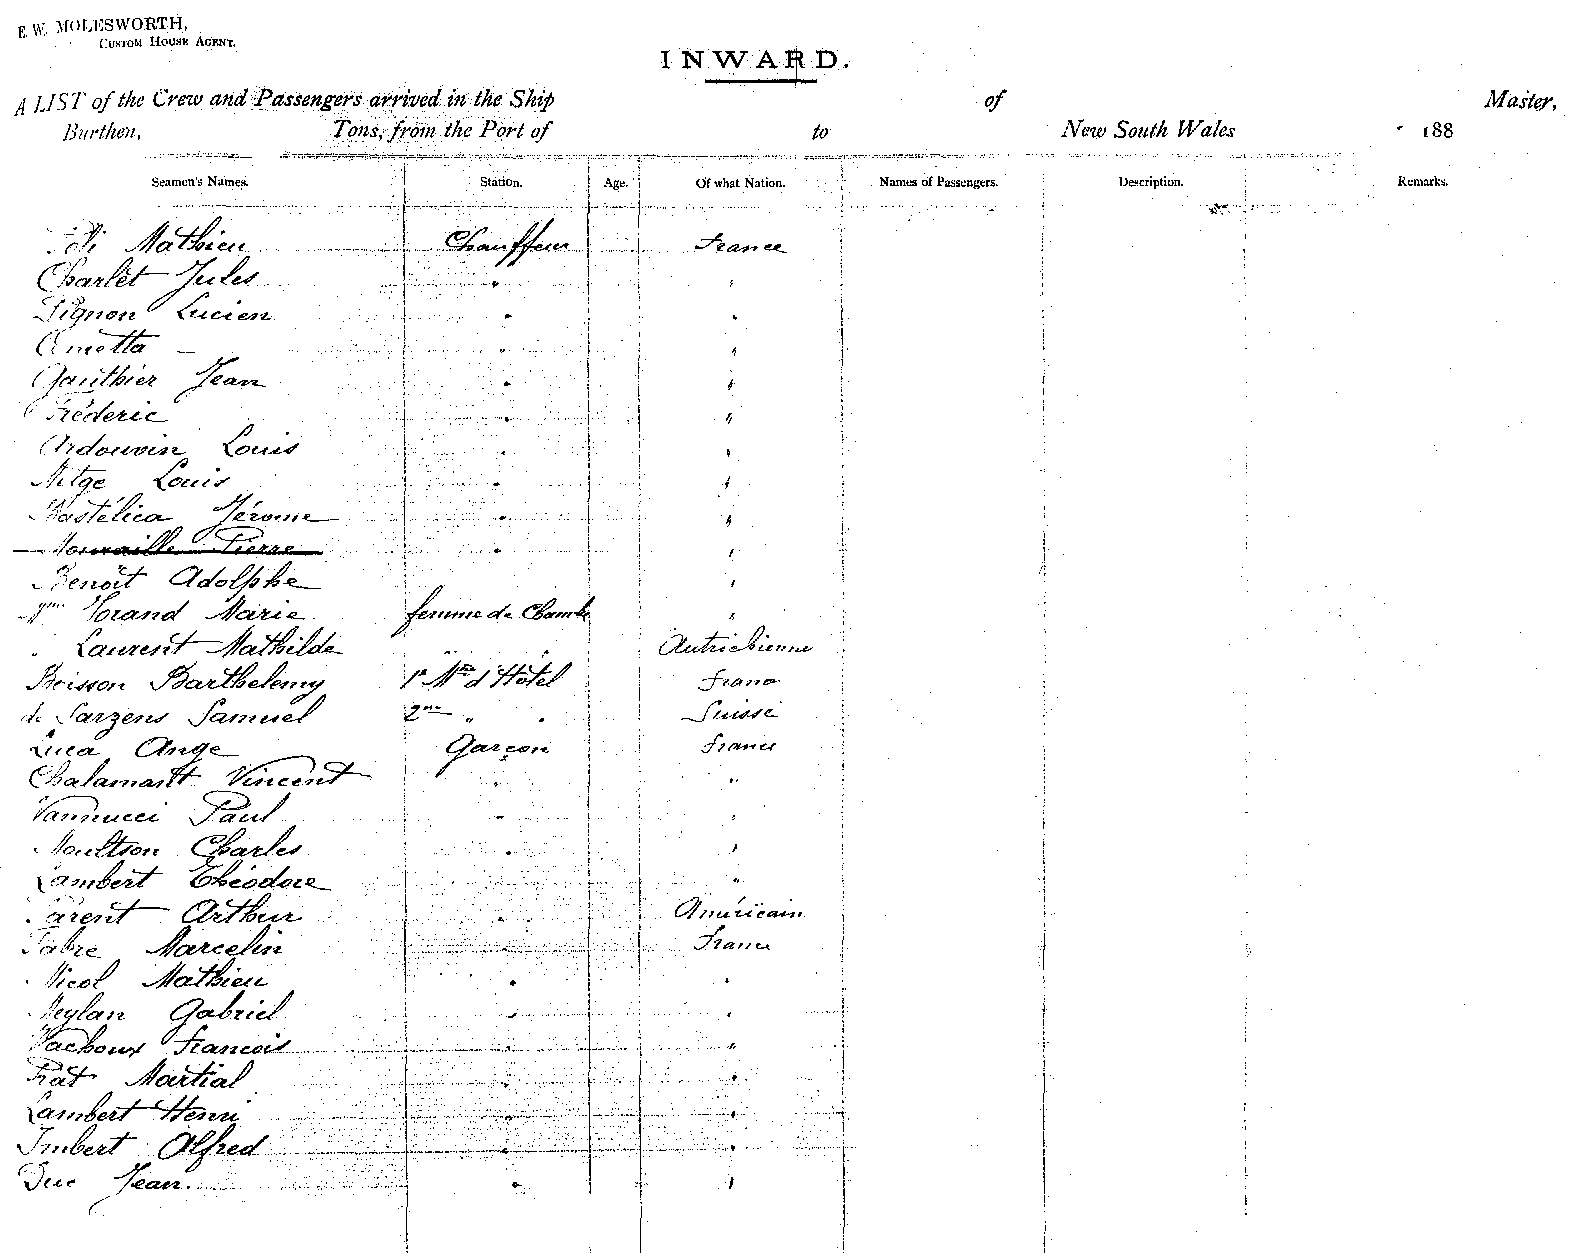 E. W. MOLESWORTH,
CUSTOM HOUSE AGENT.
INWARD.
A LIST of the Crew and Passengers arrived in the Ship of Master,
Burthen, Tons, from the Port of to New South Wales 188
Seamen's Names. Station. Age. Of what Nation. Names of Passengers. Description. Remarks.
Mathieu Chauffeur France
Charlet Jules " "
Pignon Lucien " "
Ametta — " "
Gauthier Jean " "
Fréderic " "
Ardouvin Louis " "
Mitge Louis " "
Bastélica Jérome " "
Pierre " "
Benoît Adolphe "
Marie femme de Chamb "
" Laurent Mathilde " " Autrichienne
Boisson Barthelemy 1er Mtre d'Hôtel France
de Sarzens Samuel 2me " " Suisse
Luca Ange Garçon France
Chalamant Vincent " "
Vannucci Paul " "
Moultson Charles " "
Lambert Théodore "
Parent Arthur " Américain
Fabre Marcelin France
Nicol Mathieu " "
Meylan Gabriel " "
Vachoux Francois " "
Prat Martial " "
Lambert Henri " "
Imbert Alfred " "
Duc Jean. " "